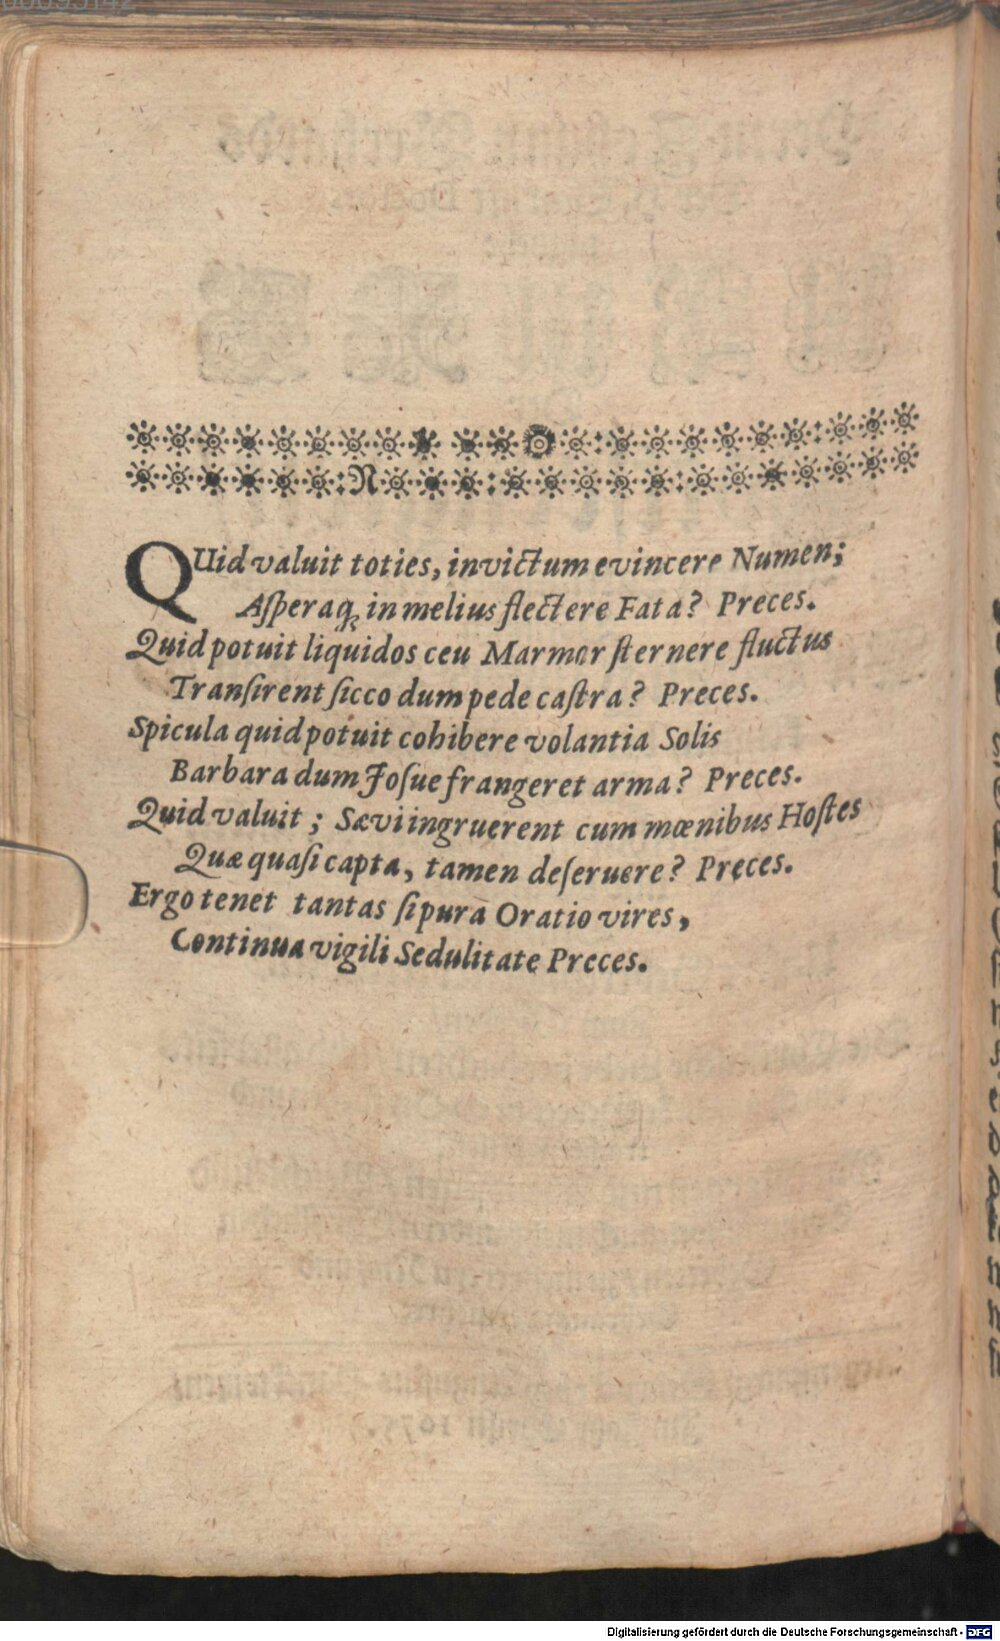 QUid valuit toties, invictum evincere Numen;
Aſperaq́; in melius flectere Fata? Preces.
Quid potuit liquidos ceu Marmor ſternere fluctus
Tranſirent ſicco dum pede caſtra? Preces.
Spicula quid potuit cohibere volantia Solis
Barbara dum Joſue frangeret arma? Preces.
Quid valuit; Sævi ingruerent cum mœnibus Hoſtes
Quæ quaſi capta, tamen deſeruere? Preces.
Ergo tenet tantas ſi pura Oratio vires,
Continua vigili Sedulitate Preces.
Digitalisierung gefördert durch die Deutsche Forschungsgemeinschaft - DFG